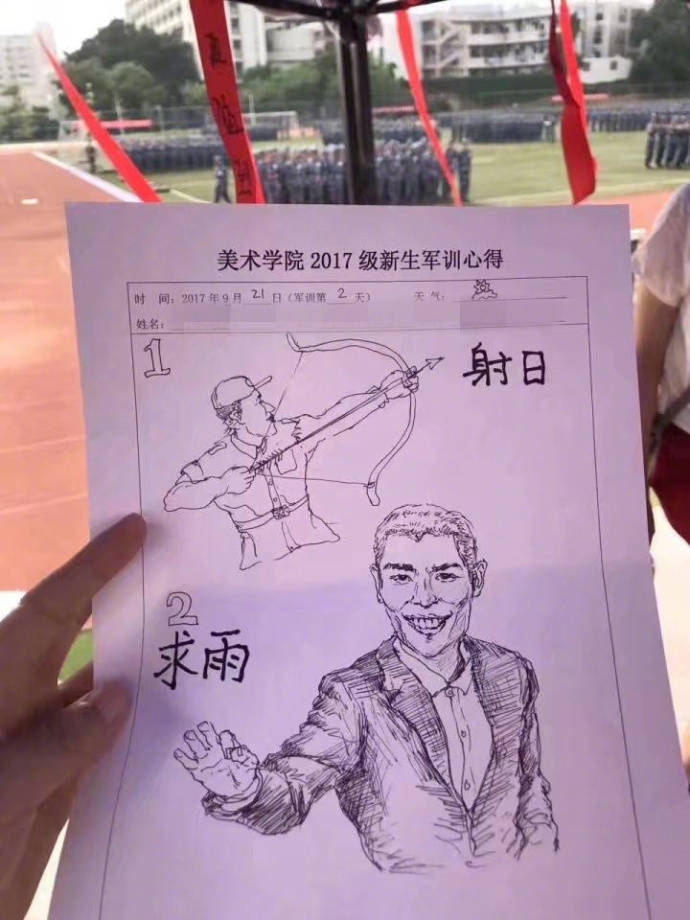 美术学院 2017 级新生军训心得
时 间：2017 年 9 月 21 日（军训第 2 天） 天 气：
姓名：
1
射日
2
求雨